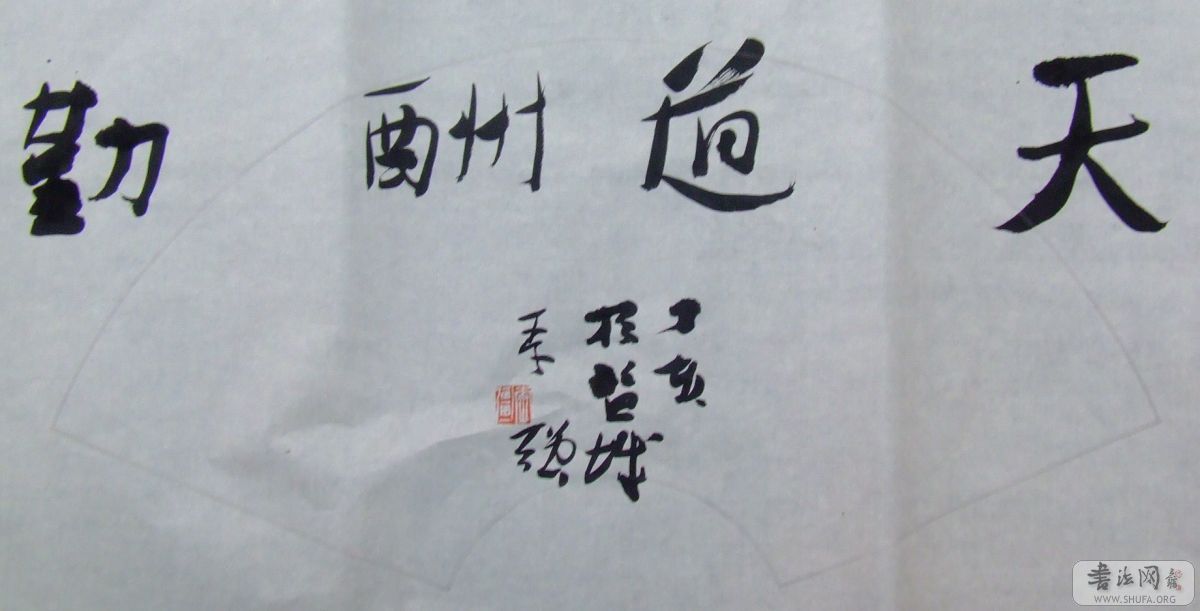 天道酬勤
丁亥
於邕城
书法网
WWW.SHUFA.ORG